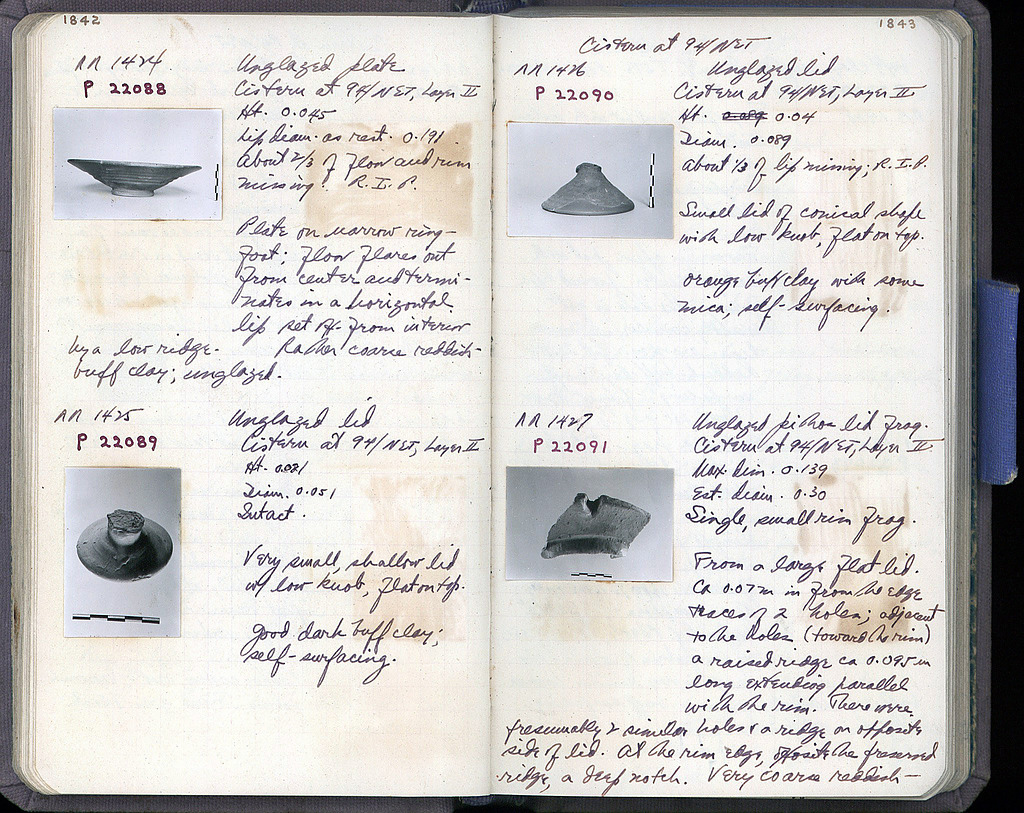 1842
AA 1424
P 22088
Unglazed plate
Cistern at 94/NET, Layer II
Ht. 0.045
Lip diam. as rest. 0.191
About 2/3 of floor and rim
missing. R.I.P.
Plate on narrow ring-
foot; floor flares out
from center and termi-
nates in a horizontal
lip set off from interior
by a low ridge. Rather coarse reddish-
buff clay; unglazed.
AA 1425
P 22089
Unglazed lid
Cistern at 94/NET, Layer II
Ht. 0.021
Diam. 0.051
Intact.
Very small, shallow lid
w/ low knob, flat on top.
Good dark buff clay;
self-surfacing.
1843
Cistern at 94/NET
AA 1426
P 22090
Unglazed lid
Cistern at 94/NET, Layer II
Ht. 0.089 0.04
Diam. 0.089
About 1/3 of lip missing; R.I.P.
Small lid of conical shape
with low knob, flat on top.
Orange buff clay with some
mica; self-surfacing.
AA 1427
P 22091
Unglazed pithos lid frag.
Cistern at 94/NET, Layer II
Max. dim. 0.139
Est. diam. 0.30
Single, small rim frag.
From a large flat lid.
Ca 0.07m in from the edge
traces of 2 holes; adjacent
to the holes (toward the rim)
a raised ridge ca 0.095m
long extending parallel
with the rim. There were
presumably 2 similar holes & a ridge on opposite
side of lid. At the rim edge, opposite the preserved
ridge, a deep notch. Very coarse reddish-